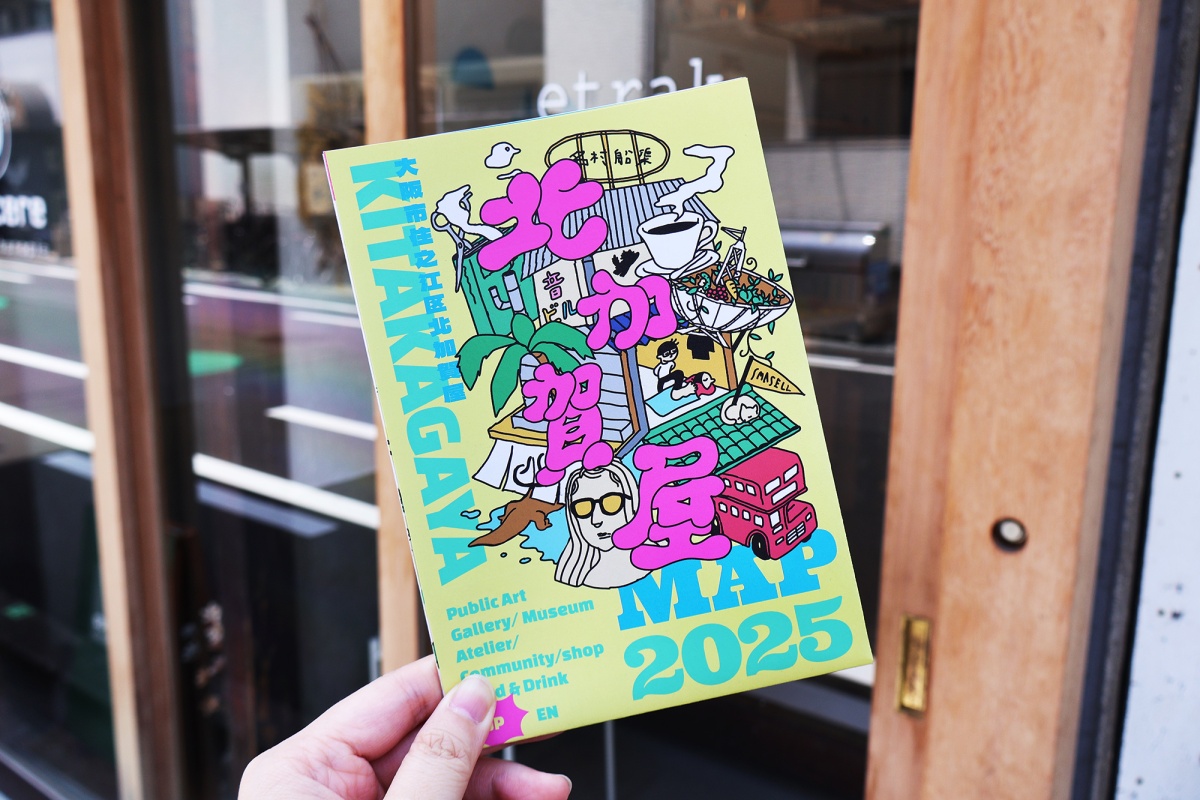 etrak
care
大阪市住之江区北加賀屋
KITAKAGAYA
名村船渠
北加賀屋
音ビル
SMASELL
MAP
2025
Public Art
Gallery/ Museum
Atelier/
Community/shop
& Drink
EN